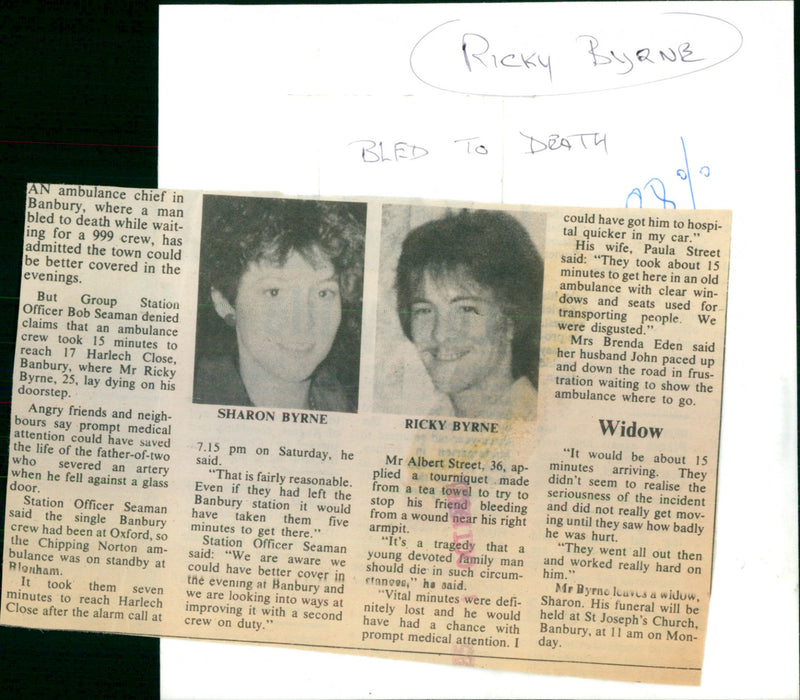 RICKY BYRNE
BLED TO DEATH
98%
AN ambulance chief in
Banbury, where a man
bled to death while wait-
ing for a 999 crew, has
admitted the town could
be better covered in the
evenings.
But Group Station
Officer Bob Seaman denied
claims that an ambulance
crew took 15 minutes to
reach 17 Harlech Close,
Banbury, where Mr Ricky
Byrne, 25, lay dying on his
doorstep.
Angry friends and neigh-
bours say prompt medical
attention could have saved
the life of the father-of-two
who severed an artery
when he fell against a glass
door.
Station Officer Seaman
said the single Banbury
crew had been at Oxford, so
the Chipping Norton am-
bulance was on standby at
Blenham.
It took them seven
minutes to reach Harlech
Close after the alarm call at
SHARON BYRNE
7.15 pm on Saturday, he
said.
"That is fairly reasonable.
Even if they had left the
Banbury station it would
have taken them five
minutes to get there."
Station Officer Seaman
said: "We are aware we
could have better cover in
the evening at Banbury and
we are looking into ways at
improving it with a second
crew on duty."
RICKY BYRNE
Mr Albert Street, 36, ap-
plied a tourniquet made
from a tea towel to try to
stop his friend bleeding
from a wound near his right
armpit.
"It's a tragedy that a
young devoted family man
should die in such circum-
stances," he said.
"Vital minutes were defi-
nitely lost and he would
have had a chance with
prompt medical attention. I
could have got him to hospi-
tal quicker in my car."
His wife, Paula Street
said: "They took about 15
minutes to get here in an old
ambulance with clear win-
dows and seats used for
transporting people. We
were disgusted."
Mrs Brenda Eden said
her husband John paced up
and down the road in frus-
tration waiting to show the
ambulance where to go.
Widow
"It would be about 15
minutes arriving. They
didn't seem to realise the
seriousness of the incident
and did not really get mov-
ing until they saw how badly
he was hurt.
"They went all out then
and worked really hard on
him."
Mr Byrne leaves a widow,
Sharon. His funeral will be
held at St Joseph's Church,
Banbury, at 11 am on Mon-
day.